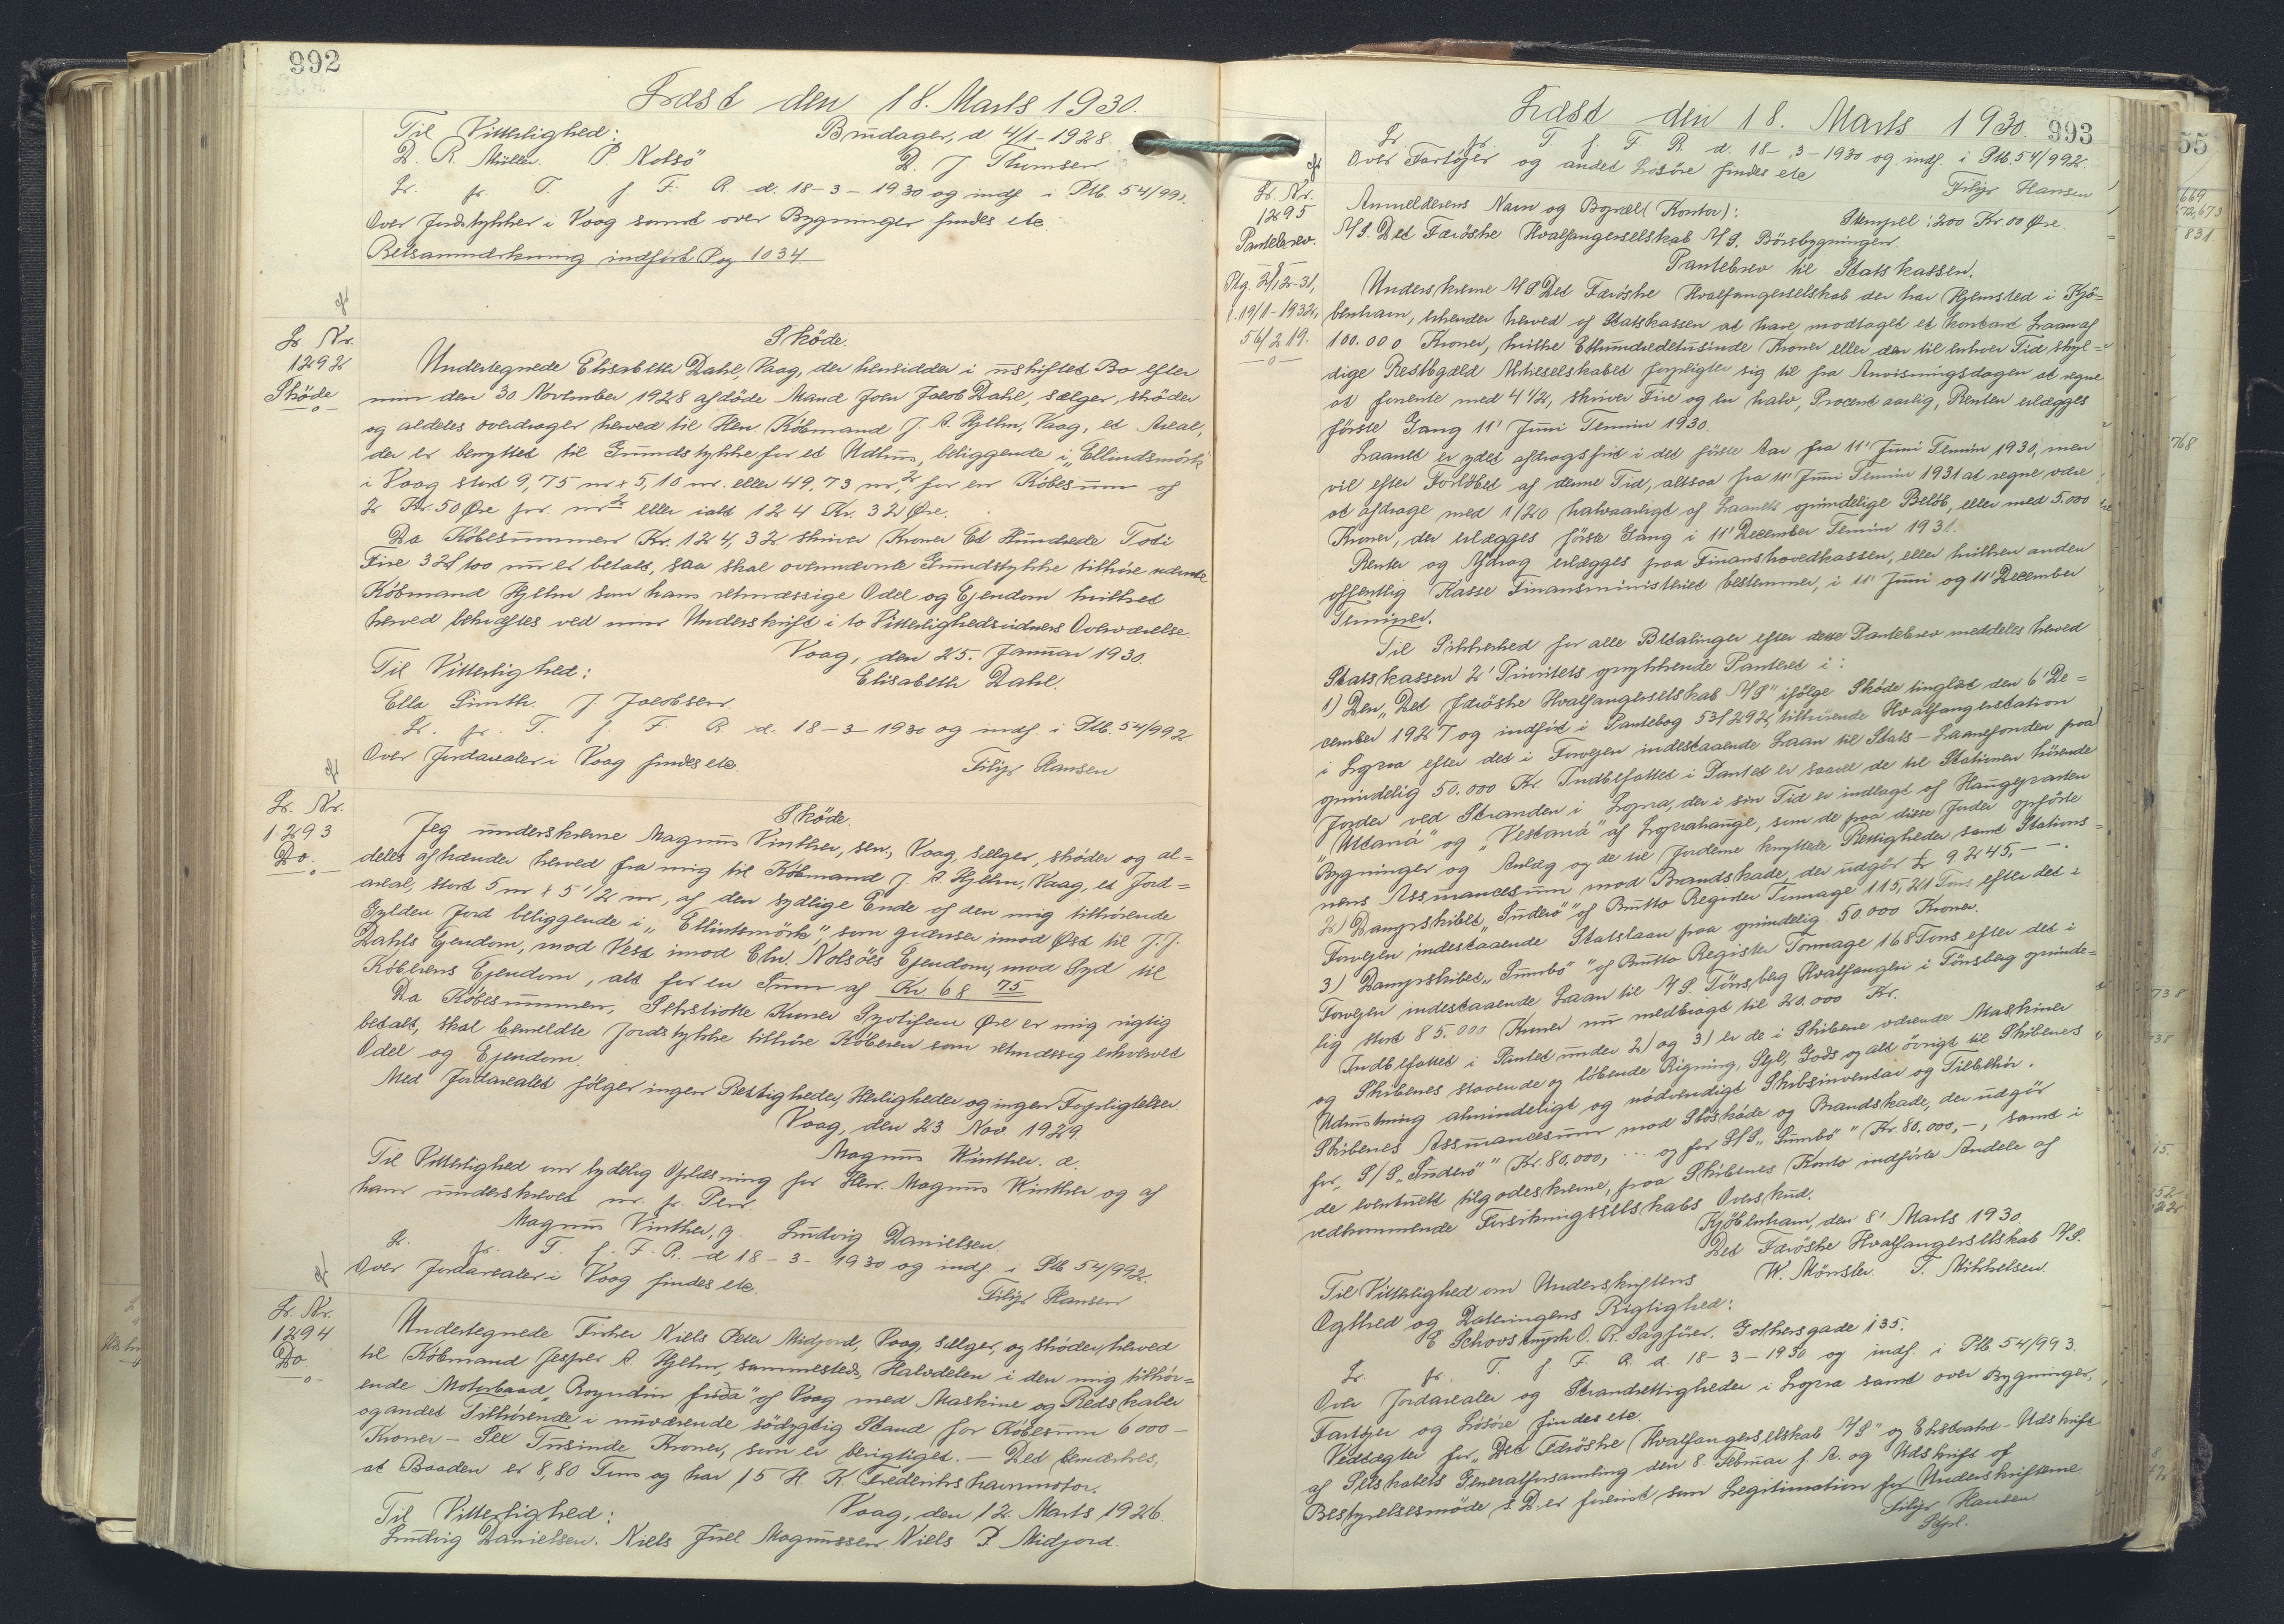 992
Læst den 18. Marts 1930.
Til Vitterlighed: Bundager, d 4/1-1928.
D. R. Müller. P. Nolsö D. J. Thomsen
Lr. fr. T. f. F. R. d. 18-3-1930 og indf. i Ptb. 54/991.
Over Jordstykker i Vaag samt over Bygninger findes etc.
Retsanmærkning indført Pag 1034
Lr. Nr.
1292
Sköde
Sköde.
Undertegnede Elisabeth Dahl, Vaag, der hensidder i uskiftet Bo efter
min den 30 November 1928 afdöde Mand Joen Jacob Dahl, sælger, sköder
og aldeles overdrager herved til Herr Köbmand J. A. Hjelm, Vaag, et Areal,
der er benyttet til Grundstykke for et Udhus, beliggende i „Ellindsmörk
i Vaag stort 9,75 m x 5,10 m. eller 49,73 m², for en Köbesum af
2 Kr. 50 Øre pr. m² eller ialt 124 Kr. 32 Øre.
Da Köbesummen Kr. 124,32 skriver Kroner Et Hundrede Toti
Fire 32/100 nu er betalt, saa skal ovennævnte Grundstykke tilhöre nævnte
Köbmand Hjelm som hans retmæssige Odel og Ejendom hvilket
herved bekræftes ved min Underskrift i to Vitterlighedsvidners Overværelse.
Vaag, den 25. Januar 1930.
Til Vitterlighed: Elisabeth Dahl.
Ella Smith. J. Jacobsen.
Lr. fr. T. f. F. R. d. 18-3-1930 og indf. i Ptb. 54/992
Over Jordarealer i Vaag findes etc. Filip Hansen
Lr. Nr.
1293
Do.
Sköde.
Jeg underskrevne Magnus Vinther, sen., Vaag, sælger, sköder og al=
deles afhænder herved fra mig til Köbmand J. A. Hjelm, Vaag, et Jord=
areal, stort 5 m x 5 1/2 m, af den sydlige Ende af den mig tilhörende
Gylden Jord beliggende i „Ellintsmörk", som grænser imod Øst til J. J.
Dahls Ejendom, mod Vest imod Chr. Nolsöes Ejendom, mod Syd til
Köberens Ejendom, alt for en Sum af Kr. 68 75
Da Köbesummen, Sekstiotte Kroner Syvtifem Øre er mig rigtig
betalt, skal bemeldte Jordstykke tilhöre Köberen som retmæssig erhvervet
Odel og Ejendom.
Med Jordarealet fölger ingen Rettigheder, Herligheder og ingen Forpligtelser.
Vaag, den 23 Nov 1929.
Magnus Winther. d.
Til Vitterlighed om tydelig Oplæsning for Herr. Magnus Winther og af
ham underskrevet m. fr. Pen.
Magnus Vinther, y. Ludvig Danielsen.
Lr. fr. T. f. F. R. d 18-3-1930 og indf. i Ptb 54/992.
Over Jordarealer i Vaag findes etc. Filip Hansen
Lr. Nr.
1294
Do
Undertegnede Fisker Niels Peter Midjord, Vaag, sælger, og sköder, herved
til Köbmand Jesper A. Hjelm, sammesteds, Halvdelen i den mig tilhör=
ende Motorbaad „Royndin frida" af Vaag med Maskine og Redskaber
og andet Tilhörende i nuværende södygtig Stand for Köbesum 6000-
Kroner - Sex Tusinde Kroner, som er berigtiget. - Det bemærkes,
at Baaden er 8,80 Tons og har 15 H. K. Frederikshavnmotor.
Til Vitterlighed: Vaag, den 12. Marts 1926.
Ludvig Danielsen. Niels Juel Magnussen. Niels P. Midjord.
Læst den 18. Marts 1930. 993
Lr. fr. T. f. F. R. d. 18-3-1930 og indf. i Ptb. 54/992.
Over Fartöjer og andet Lösöre findes etc
Filip Hansen
Lr. Nr.
1295
Pantebrev.
Anmelderens Navn og Bopæl (Kontor): Stempel: 200 Kr. 00 Øre.
A/S. Det Færöske Hvalfangerselskab A/S. Börsbygningen.
Pantebrev til Statskassen.
l. 19/1-1932,
56/219.
Underskrevne A/S Det Færöske Hvalfangerselskab der har Hjemsted i Kjö=
benhavn, erkender herved af Statskassen at have modtaget et kontant Laan af
100.000 Kroner, hvilke Ethundredetusinde Kroner eller den til enhver Tid skyl=
dige Restgæld Aktieselskabet forpligter sig til fra Anvisningsdagen at regne
at forrente med 4 1/2, skriver Fire og en halv, Procent aarlig, Renten erlægges
förste Gang 11' Juni Termin 1930.
Laanet er ydet afdragsfrit i det förste Aar fra 11' Juni Termin 1930, men
vil efter Forløbet af denne Tid, altsaa fra 11' Juni Termin 1931 at regne være
at afdrage med 1/20 halvaarligt af Laanets oprindelige Beløb, eller med 5.000
Kroner, der erlægges förste Gang i 11' December Termin 1931.
Renter og Afdrag erlægges paa Finanshovedkassen, eller hvilken anden
offentlig Kasse Finansministeriet bestemmer, i 11' Juni og 11' December
Terminer.
Til Sikkerhed for alle Betalinger efter dette Pantebrev meddeles herved
Statskassen 2' Prioritets oprykkende Panteret i:
1) Den „Det færöske Hvalfangerselskab A/S" ifölge Sköde tinglæst den 6' De=
cember 1927 og indfört i Pantebog 53/292, tilhörende Hvalfangerstation
i Lopra efter det i Forvejen indestaaende Laan til Stats-Laanefonden paa
oprindelig 50.000 Kr. Indbefattet i Pantet er saavel de til Stationen hörende
Jorder ved Stranden i Lopra, der i sin Tid er indlagt af Haugeparten
"Uttaná" og „Vestaná" af Loprahauge, som de paa disse Jorder opförte
Bygninger og Anlæg og de til Jorderne knyttede Rettigheder samt Stations=
nens Assurancesum mod Brandskade, der udgör £ 9245,--.
2) Dampskibet „Suderö" af Brutto Register Tonnage 115,21 Tons efter det i
Forvejen indestaaende Statslaan paa oprindelig 50.000 Kroner.
3) Dampskibet „Sumbö" af Brutto Register Tonnage 168 Tons efter det i
Forvejen indestaaende Laan til A/S. Tönsberg Hvalfangeri i Tönsberg oprinde=
lig stort 85.000 Kroner nu nedbragt til 20.000 Kr.
Indbefattet i Pantet under 2) og 3) er de i Skibene værende Maskiner
og Skibenes staaende og löbende Rigning, Sejl, Gods og alt övrigt til Skibenes
Udrustning almindeligt og nödvendigt Skibsinventar og Tilbehör.
Skibenes Assurancesum mod Söskade og Brandskade, der udgör
for „S/S „Suderö" Kr. 80,000, ... og for S/S „Sumbö" Kr. 80.000,-, samt i
de eventuelt tilgodeskrevne, paa Skibenes Konto indförte Andele af
vedkommende Forsikringsselskabs Overskud.
Kjöbenhavn, den 8' Marts 1930.
Det Færöske Hvalfangerselskab A/S.
Til Vitterlighed om Underskriftens W. Mönster. T. Mikkelsen.
Ægthed og Dateringens Rigtighed:
E Schovstrup O. R. Sagförer. Gothersgade 135.
Lr. fr. T. f. F. R. d. 18-3-1930 og indf. i Ptb. 54/993.
Over Jordarealer og Strandrettigheder i Lopra samt over Bygninger,
Fartöjer og Lösöre findes etc.
Vedtægter for „Det Færöske Hvalfangerselskab A/S" og Ekstrakt-Udskrift
af Selskabets Generalforsamling den 8. Februar f. A. og Udskrift af
Bestyrelsesmöde s. D. er forevist som Legitimation for Underskrifterne.
Filip Hansen.
55